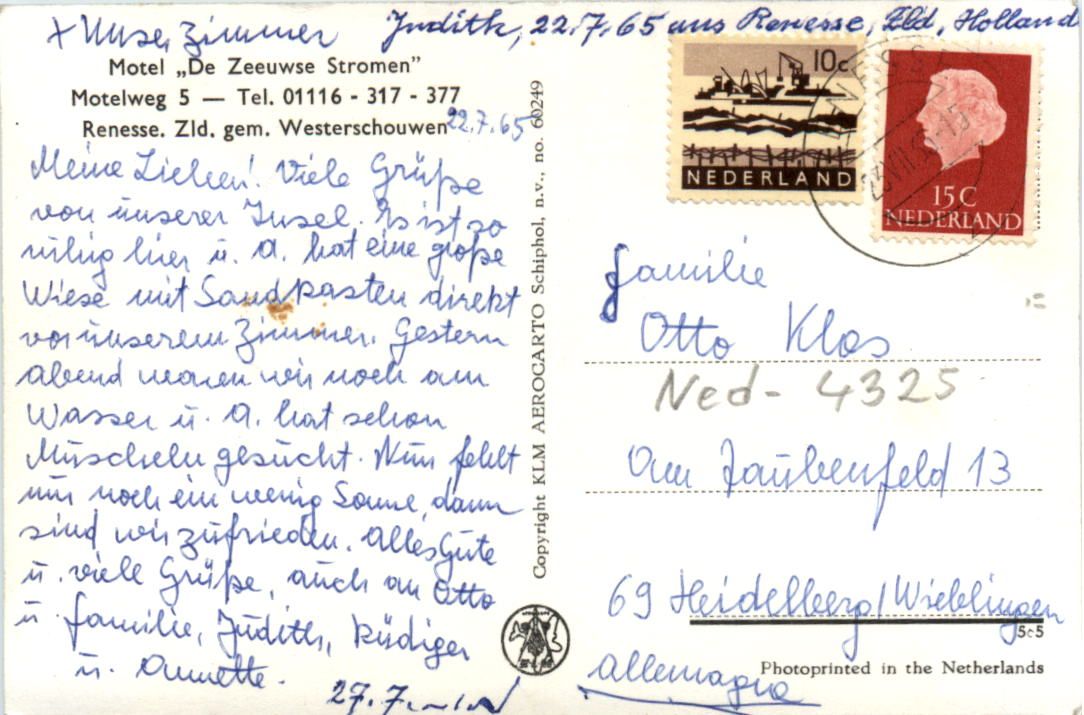 + Unser Zimmer
Judith, 22.7.65 aus Renesse, Zld, Holland
Motel „De Zeeuwse Stromen”
Motelweg 5 — Tel. 01116 - 317 - 377
Renesse. Zld. gem. Westerschouwen
22.7.65
Meine Lieben! Viele Grüße
von unserer Insel. Es ist so
ruhig hier u. A. hat eine große
Wiese mit Sandkasten direkt
vor unserem Zimmer. Gestern
abend waren wir noch am
Wasser u. A. hat schon
Muscheln gesucht. Nun fehlt
nur noch ein wenig Sonne, dann
sind wir zufrieden. Alles Gute
u. viele Grüße, auch an Otto
u. Familie, Judith, Rüdiger
u. Annette.
27.7.
Copyright KLM AEROCARTO Schiphol, n.v., no. 60249
10c
NEDERLAND
15C
NEDERLAND
Familie
Otto Klos
Ned - 4325
Am Taubenfeld 13
69 Heidelberg/Wieblingen
5c5
Allemagne
Photoprinted in the Netherlands